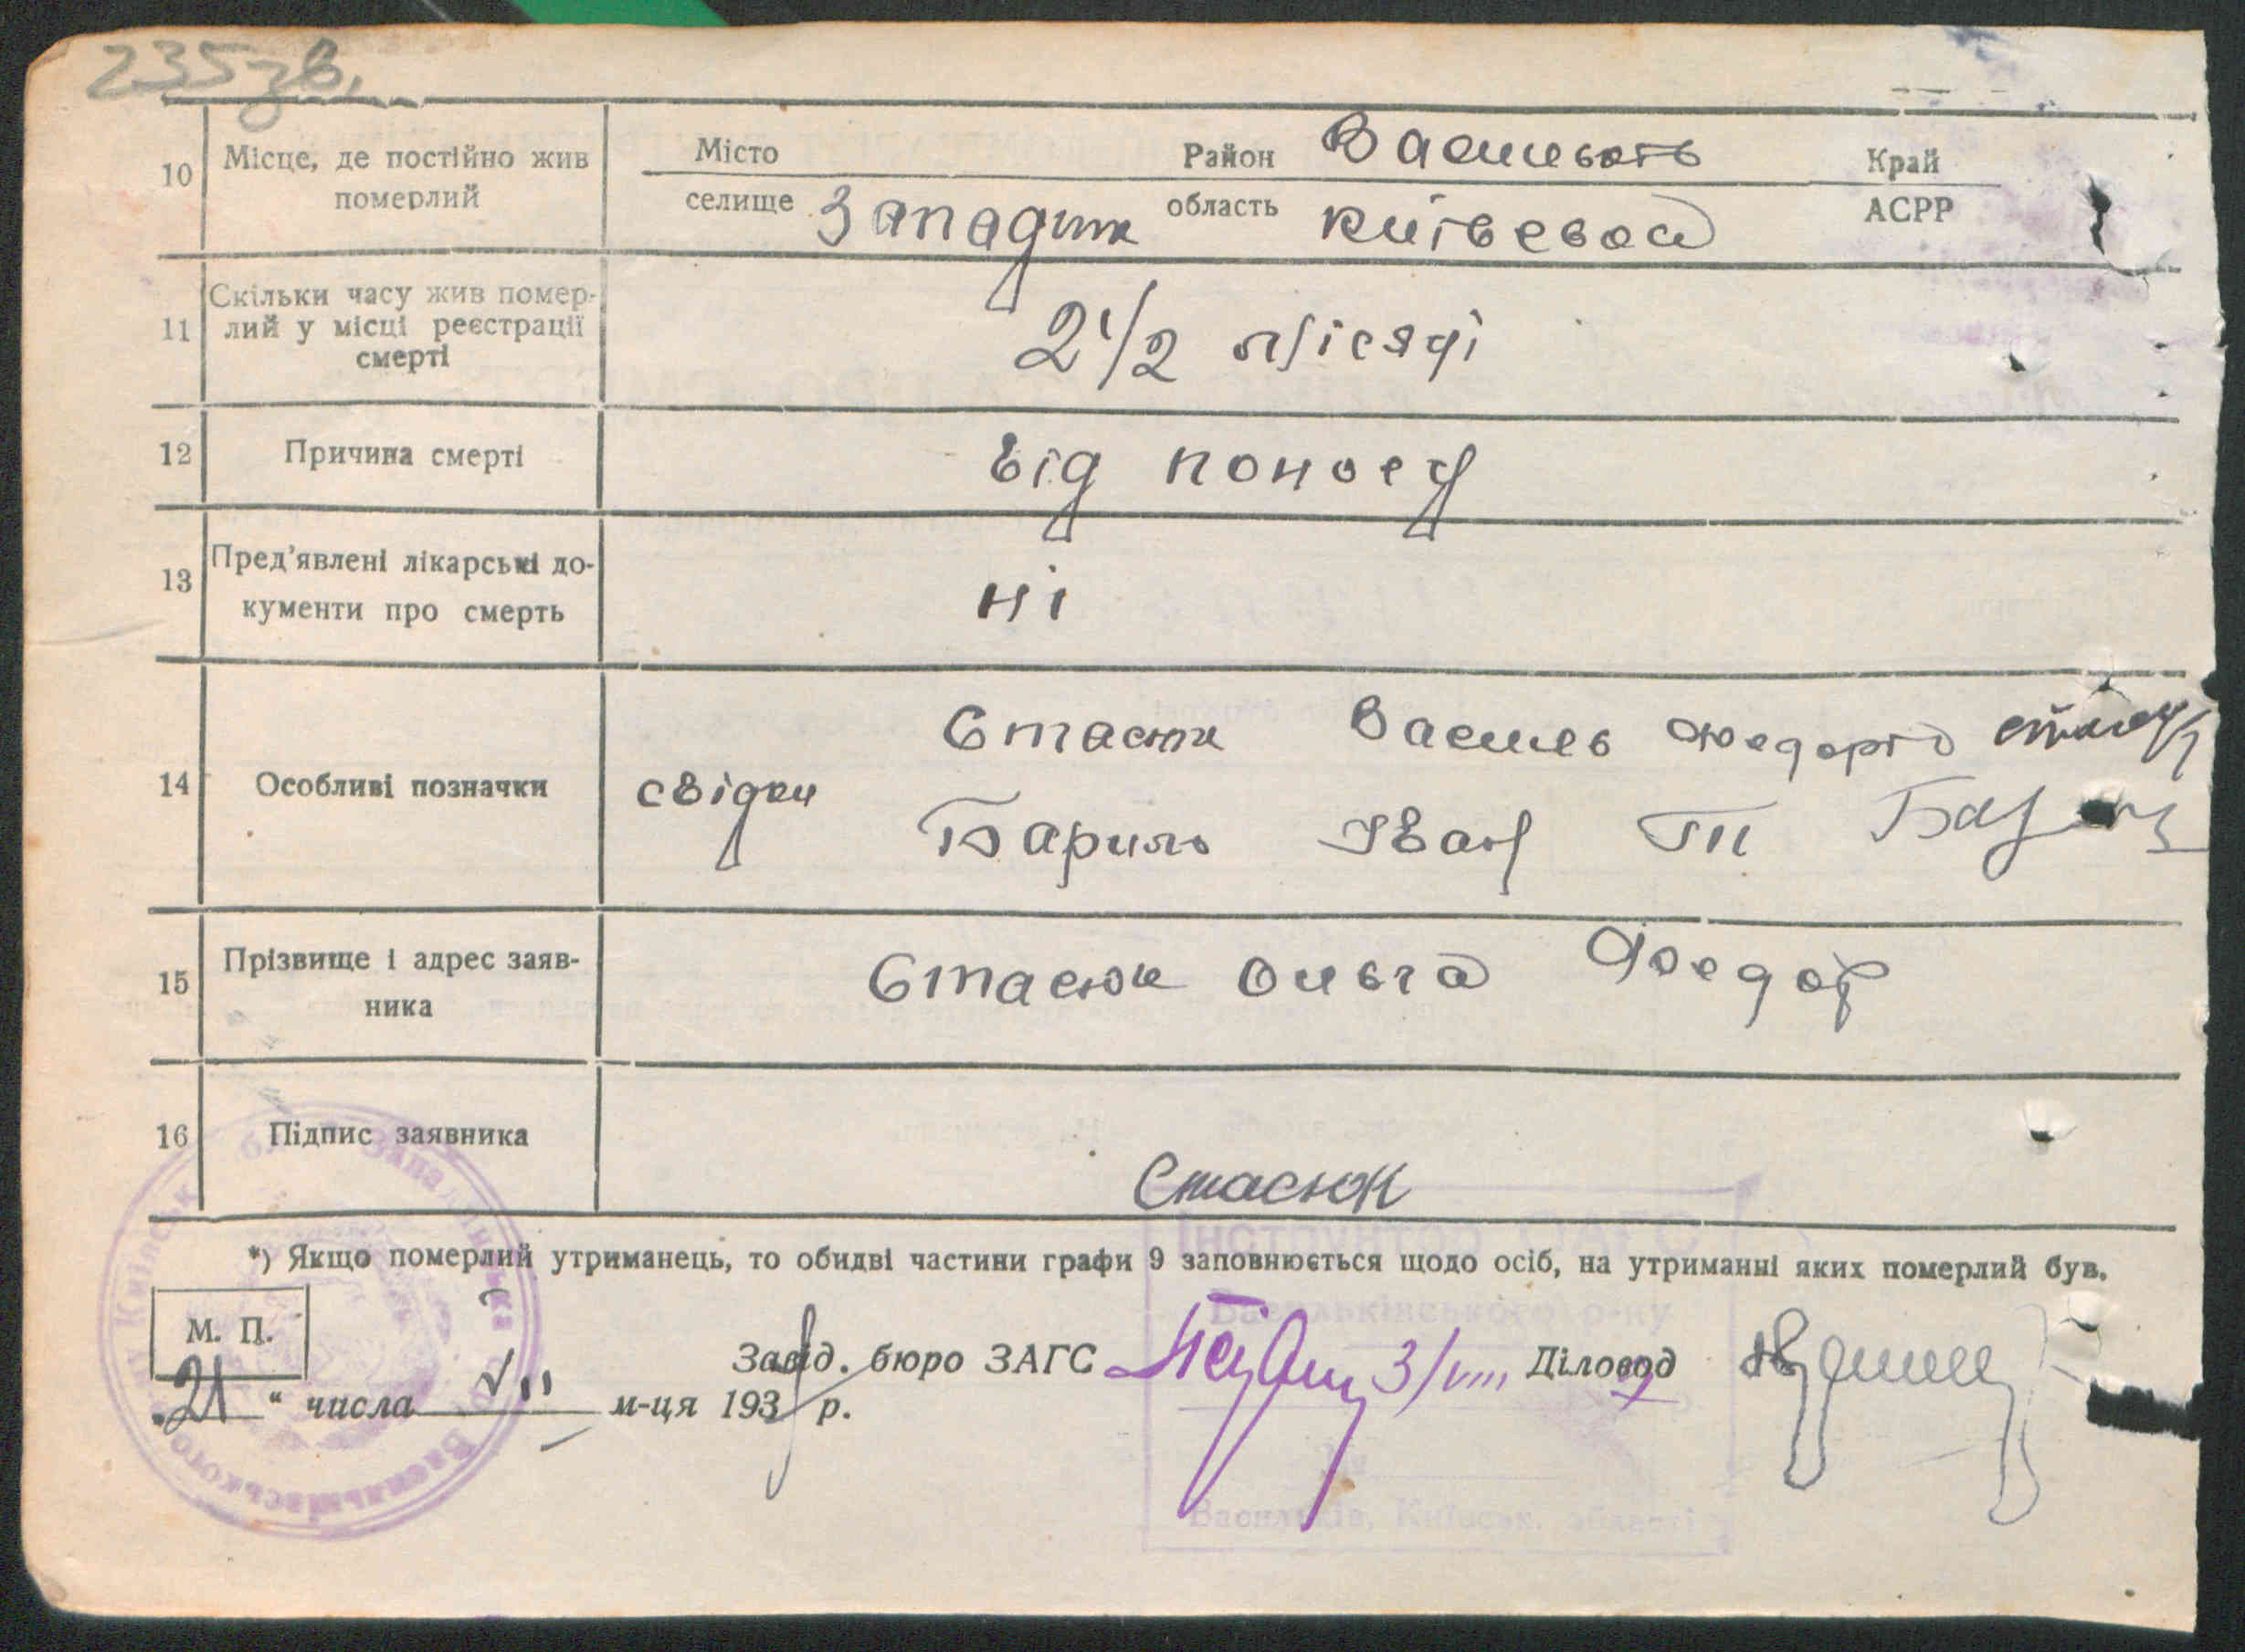 235 зв.
10 Місце, де постійно жив померлий
Місто Район Васильків Край
селище Западинк область київської АСРР
11 Скільки часу жив помер-
лий у місці реєстрації
смерті
2 1/2 місяці
12 Причина смерті від поносу
13 Пред'явлені лікарські до-
кументи про смерть
ні
14 Особливі позначки
Стасюк Василь Федорів
свідки
Бариль Іван
15 Прізвище і адрес заяв-
ника
Стасюк Ольга Федор
16 Підпис заявника
Стасюк
*) Якщо померлий утриманець, то обидві частини графи 9 заповнюється щодо осіб, на утриманні яких померлий був.
М. П.
Завід. бюро ЗАГС 3/VIII Діловод
„21“ числа VII м-ця 193 р.
Інструктор ЗАГС
Васильківського р-ну
Васильків, Київськ. області